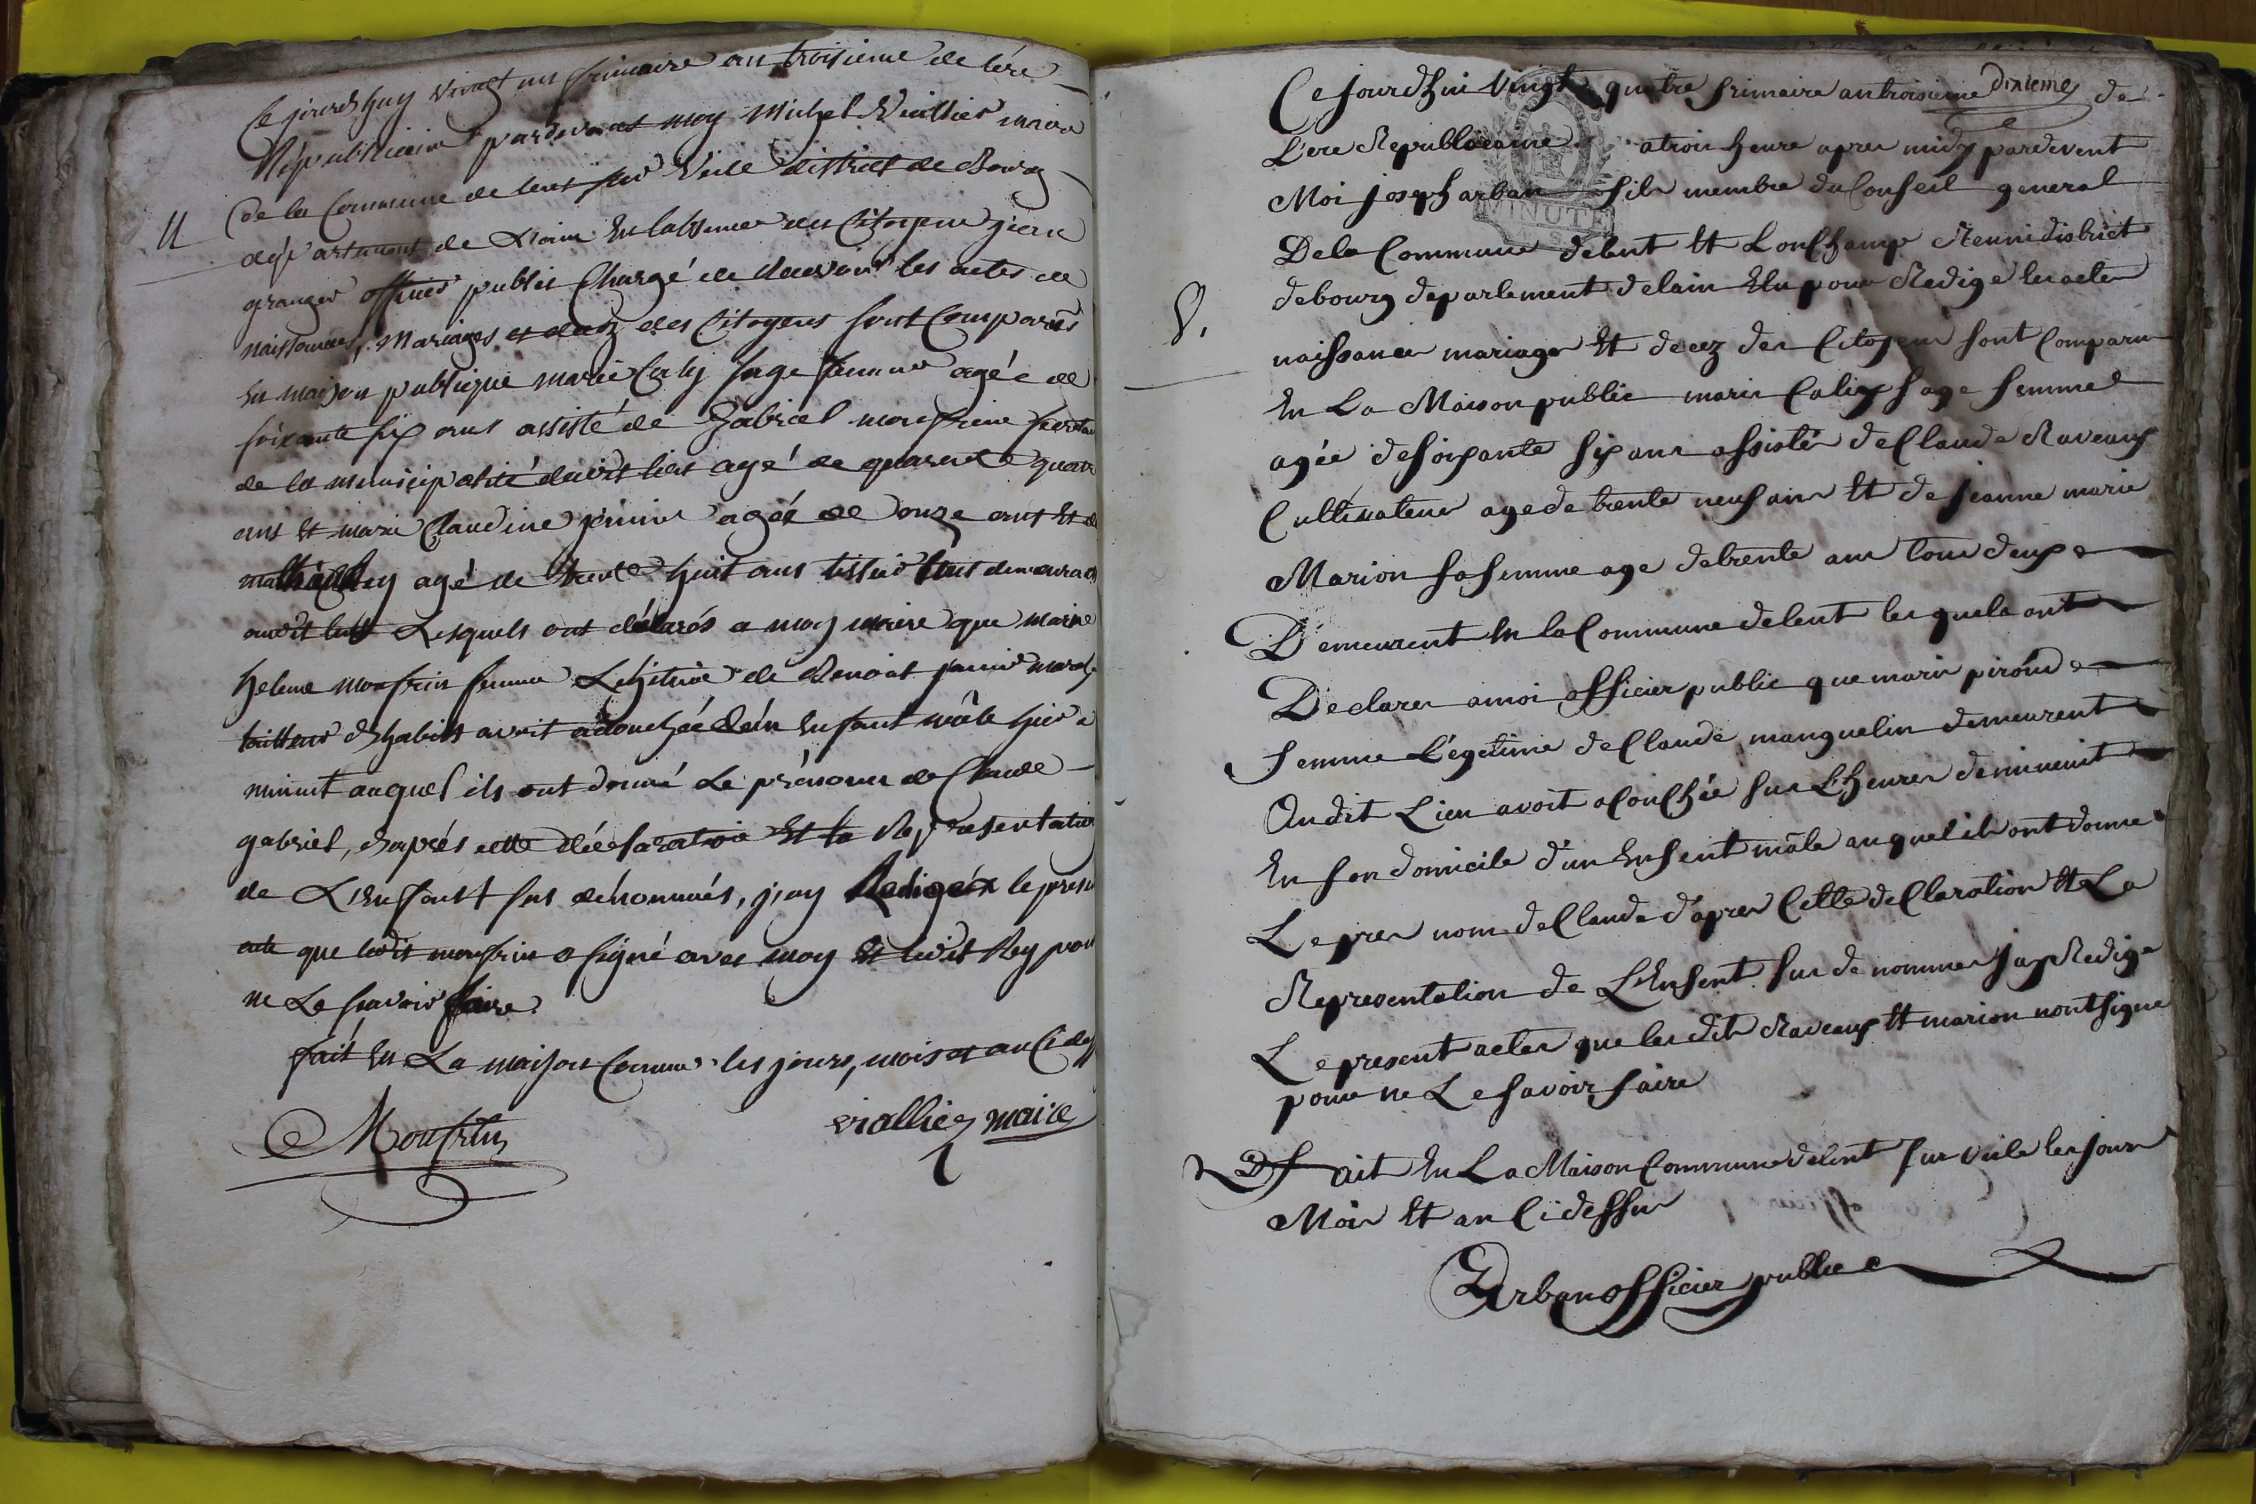 Ce jourdhuy vingt un frimaire an troisieme de lére
Républicaine pardevant moy Michel Viallier maire
de la Commune de lent sur Veile district de Bourg
département de L'ain En labsence du Citoyen jean
11
granger officier public Chargé de recevoir les actes de
naissances, Mariages et decez des Citoyens sont Comparus
En maison publique marie Caly sage femme agée de
soixante six ans assisté de Gabriel monfrin
de la municipalité dudit lieu agé de quarente quatre
ans Et marie Claudine janin agée de onze ans Et de
Rey agé de trente huit ans tissier tous demeurant
audit lent Lesquels ont déclarés a moy maire que marie
helene monfrin femme Léhitime de Benoit janin
tailleur d'habits avoit acouchée d'un Enfant mâle hier a
minuit auquel ils ont donné Le prénom de Claude
gabriel, d'aprés cette déclaration Et la Representation
de L'Enfant sus dénommés, j'ay Redigéx le present
acte que ledit monfrin a signé avec moy Et ledit Rey pour
ne Le savoir faire
fait En La maison Commune les jours, mois et an Cidessus
Monfrin
viallier maire
Ce jourdhui vingt quatre frimaire an troisieme dixieme de
L'ere Republicaine a troin heure apres midy pardevent
Moi joseph arban fils membre du Conseil general
MINUTE
De la Commune delent Et LonChamp Reuni district
debourg departement delain Elu pour Redige les actes
V.
naissance mariage Et decez des Citoyens sont Comparu
En La Maison public marie Calix sage femme
agée desoixante six ans assistés de Claude Raveaux
Cultivateur age de trente neuf ans Et de jeanne marie
Marion sa femme age detrente ans tous deux
Demeurent En la Commune delent les quels ont
Declares amoi officier public que marie piroud
femme Légetime de Claude manguelin demeurent
Audit Lieu avoit acouchée sur L'heure deminuit
En son domicile d'un Enfent mâle auquel ils ont donne
Le pres nom de Claude d'apres Cette declaration Et La
Representation de L'Enfent sus de nommes jay Redige
Le present actes que les dit Raveaux Et marion nont signe
pour ne Le savoir faire
fait En La Maison Commune delent sur veile les jour
Mois Et an Cidessus
Arban officier public